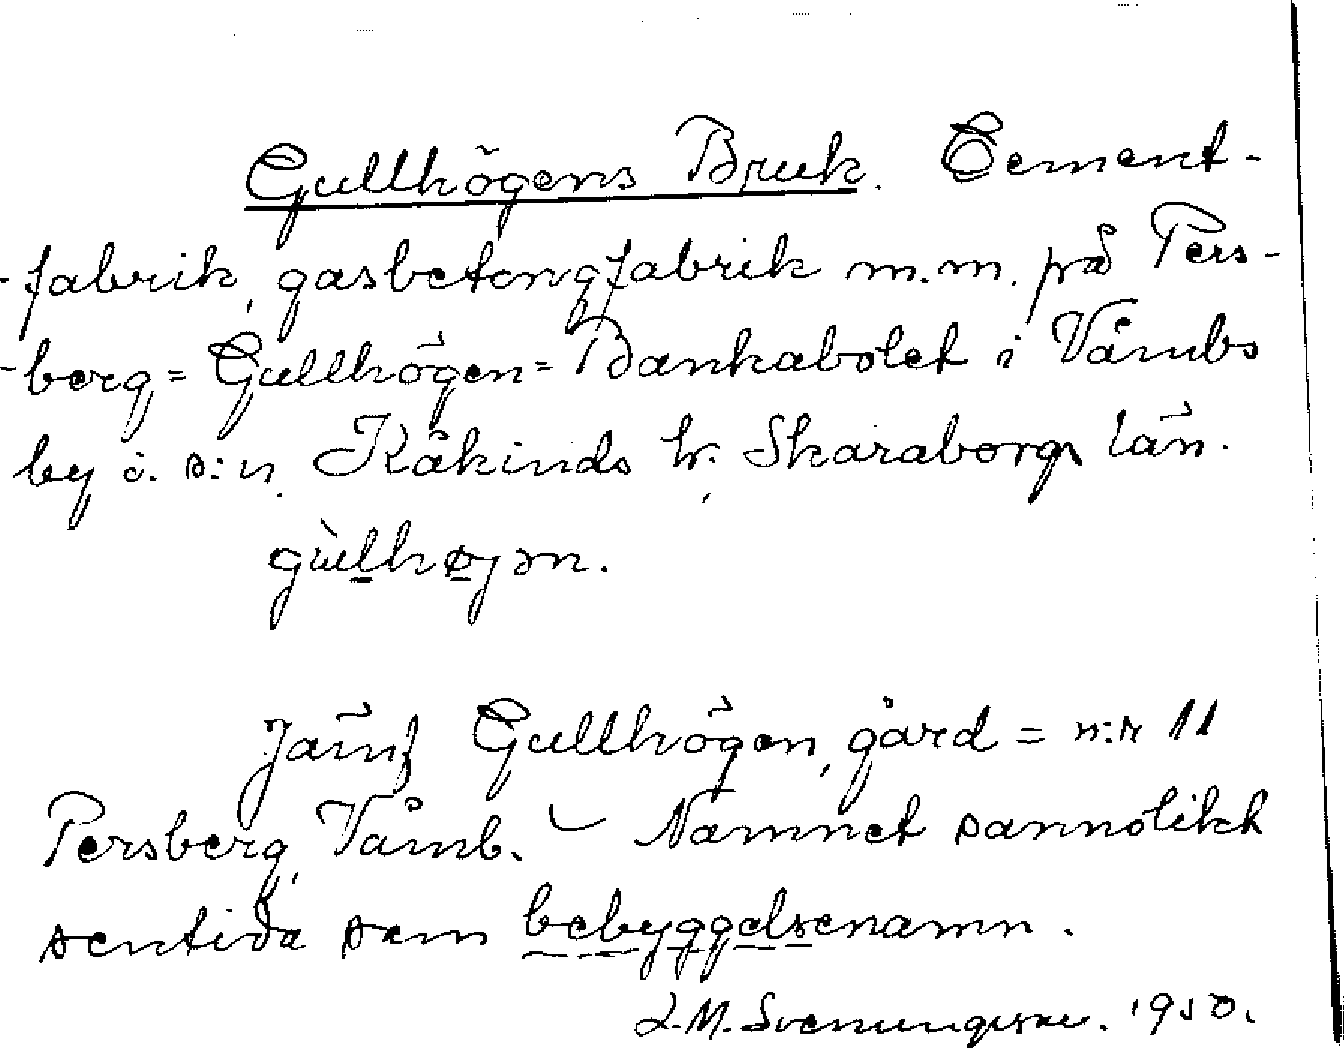 Gullhögens Bruk. Cement-
-fabrik, gasbetongfabrik m.m. på Pers-
-berg = Gullhögen = Bankabolet i Våmbs
by o. s:n, Kåkinds hr. Skaraborgs län.
gùlhøjən.
Jämf Gullhögen, gård = n:r 11
Persberg, Våmb. – Namnet sannolikt
sentida som bebyggelsenamn.
L.M. Svenungsson. 1950.